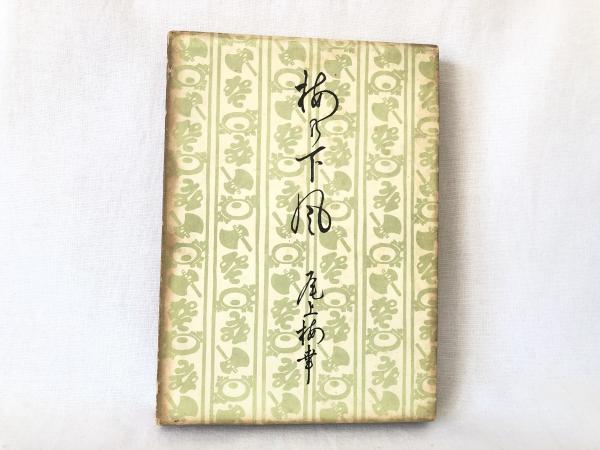 梅の下風
尾上梅幸